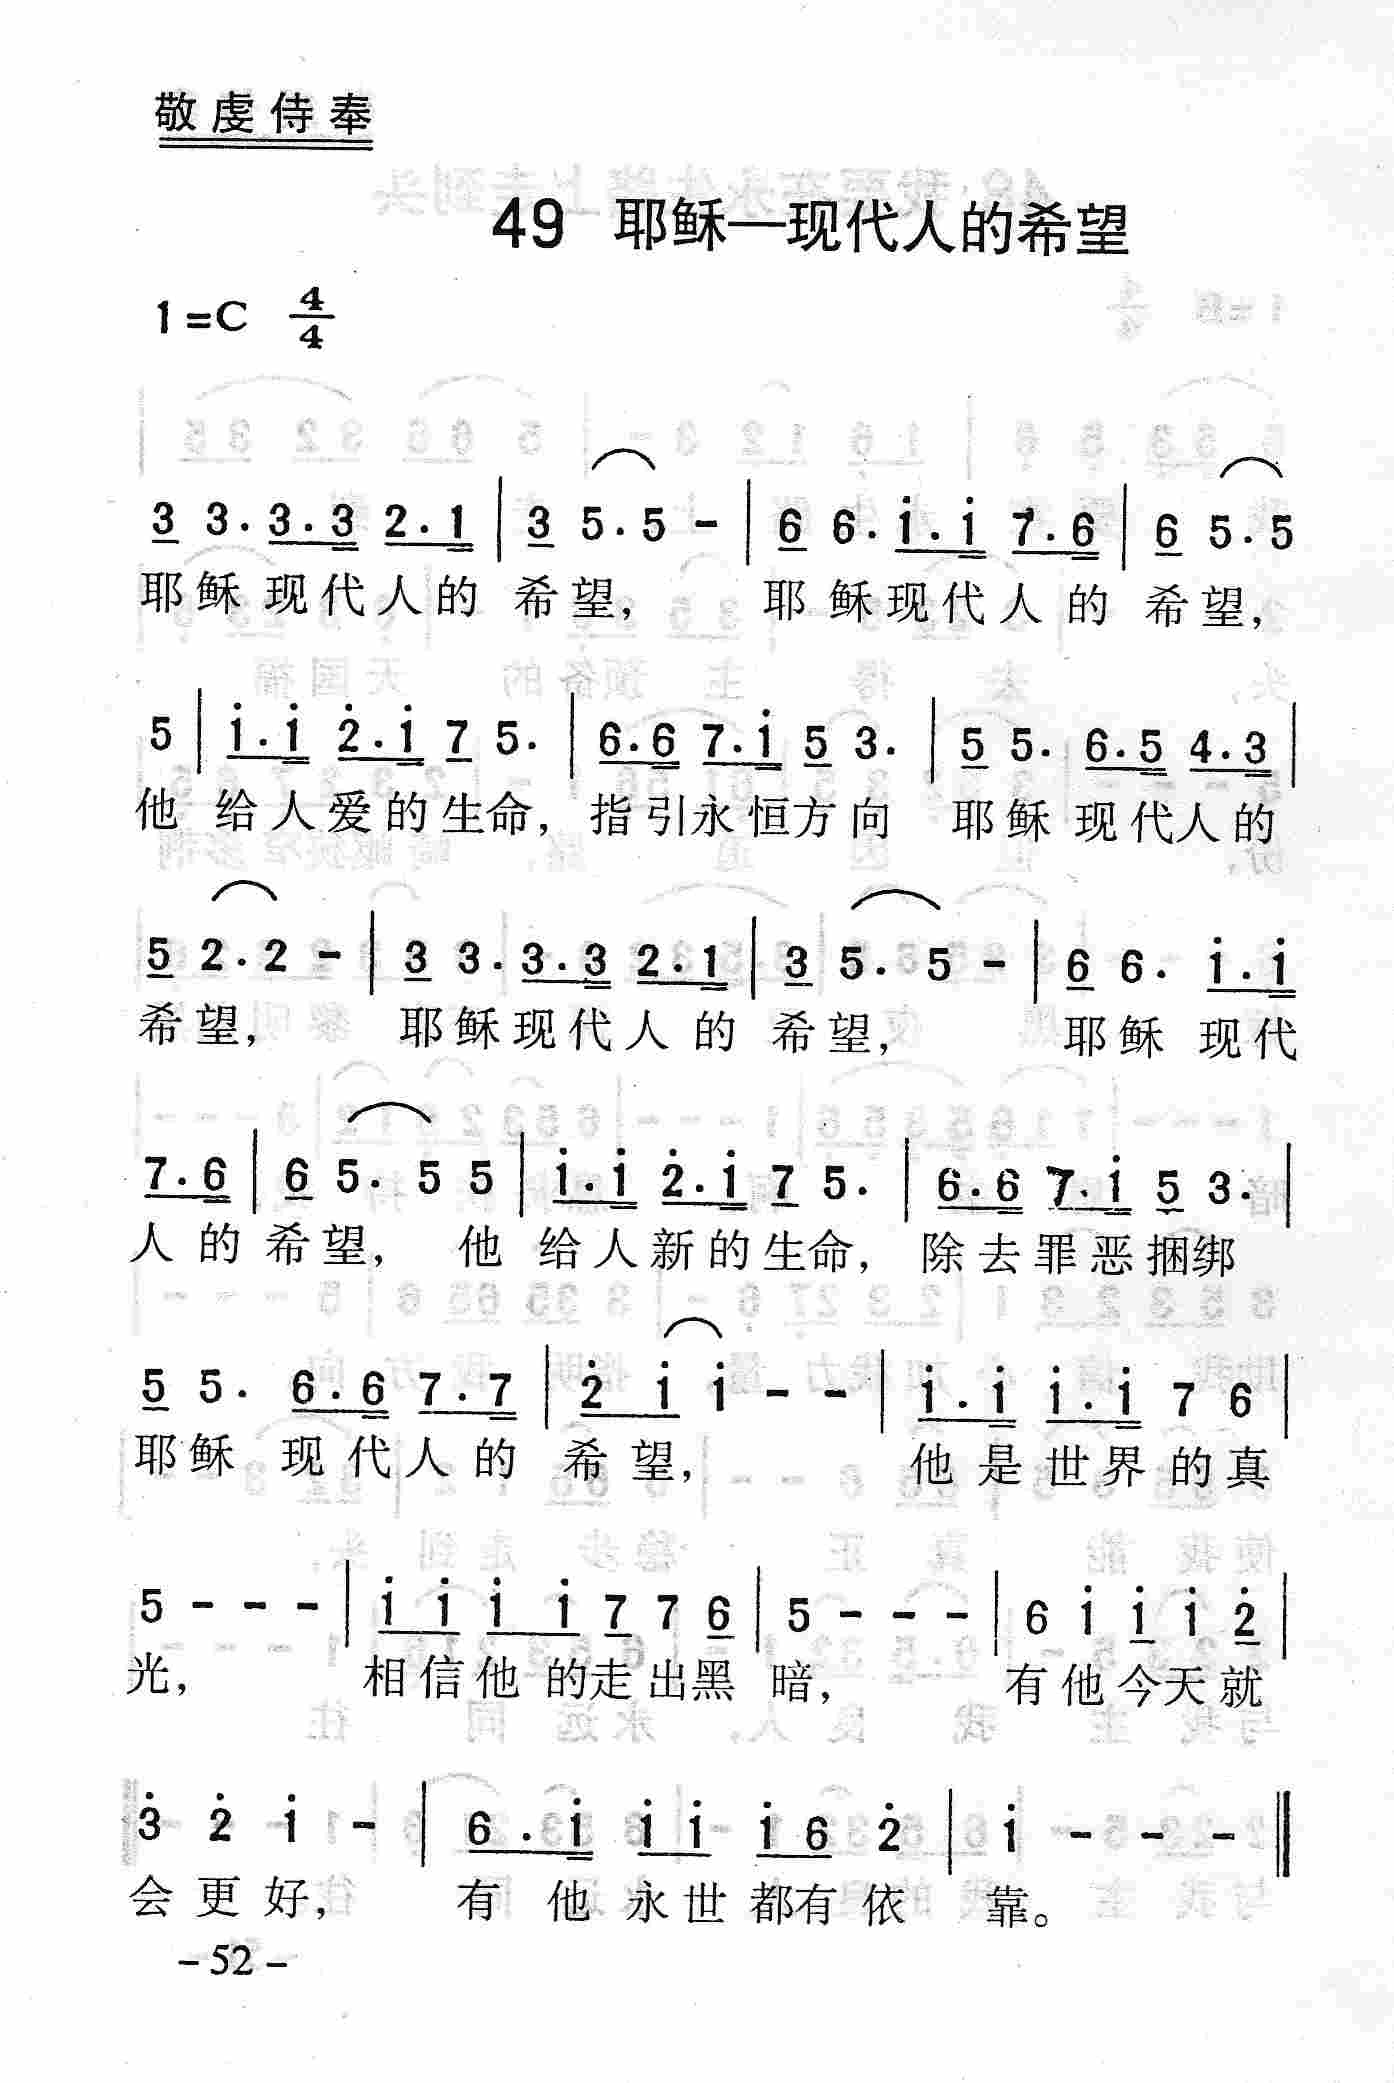 敬虔侍奉
49 耶稣—现代人的希望
1=C 4/4
3 3·3·3 2·1 | 3 5·5 - | 6 6·i·i 7·6 | 6 5·5
耶稣现代人的 希望， 耶稣现代人的 希望，
5 | i·i 2̇·i 7 5· | 6·6 7·i 5 3· | 5 5· 6·5 4·3 |
他 给人爱的生命，指引永恒方向 耶稣现代人的
5 2·2 - | 3 3·3·3 2·1 | 3 5·5 - | 6 6· i·i
希望， 耶稣现代人的 希望， 耶稣现代
7·6 | 6 5·5 5 | i·i 2̇·i 7 5· | 6·6 7·i 5 3· |
人的希望， 他 给人新的生命，除去罪恶捆绑
5 5· 6·6 7·7 | 2̇ i i - - | i·i i·i 7 6 |
耶稣 现代人的 希望， 他是世界的真
5 - - - | i i i i 7 7 6 | 5 - - - | 6 i i i 2̇ |
光， 相信他的走出黑 暗， 有他今天就
3̇ 2̇ i - | 6·i i i i 6 2̇ | i - - - ‖
会更好， 有他永世都有依 靠。
- 52 -